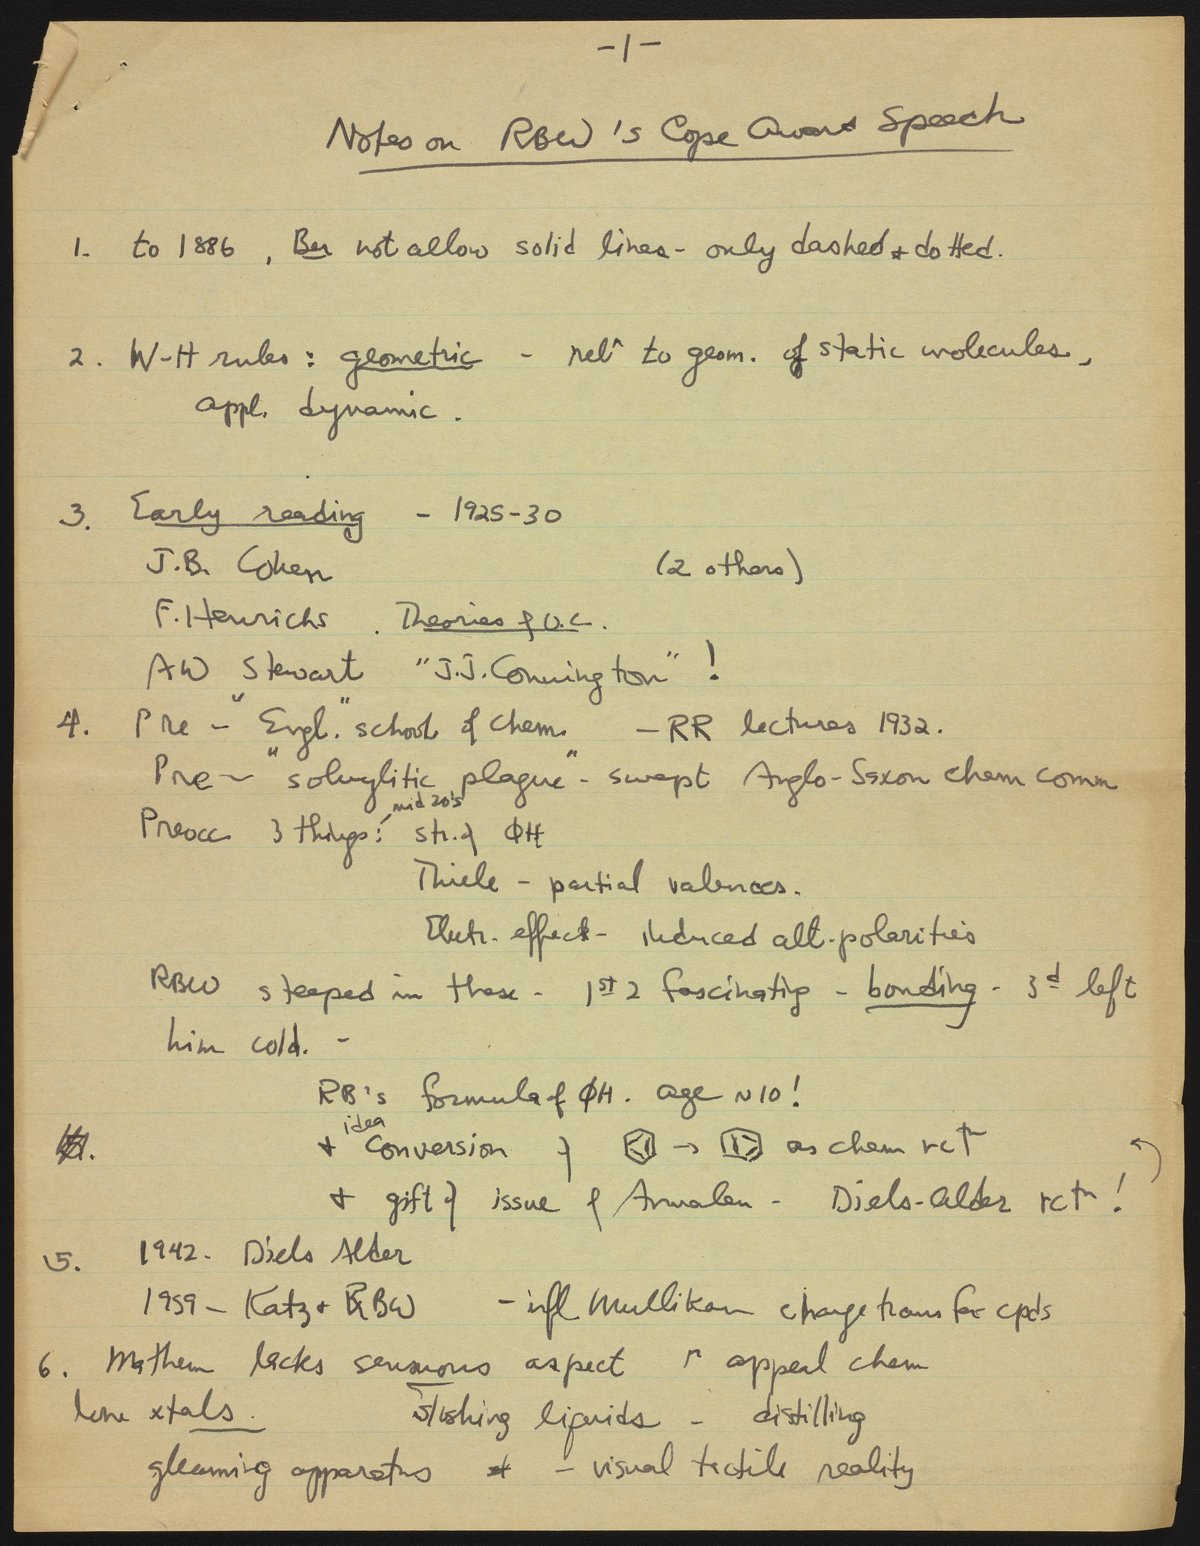 -1-
Notes on RBW's Cope Award Speech
1. to 1886, Ber not allow solid lines - only dashed + dotted.
2. W-H rules: geometric - rel^n to geom. of static molecules,
appl. dynamic.
3. Early reading - 1925-30
J.B. Cohen (2 others)
F. Henrichs. Theories of O.C.
AW Stewart "J.J. Connington" !
4. Pre - "Engl." school of chem. - RR lectures 1932.
Pre - "solvylitic plague" - swept Anglo-Saxon chem comm
mid 20's
Preocc 3 things: str. of ΦH
Thiele - partial valences.
Electr. effects - induced alt. polarities
RBW steeped in these - 1st 2 fascinating - bonding - 3d left
him cold. -
RB's formula of ΦH. age ~10!
idea
+ conversion of → as chem rctn
+ gift of issue of Annalen - Diels-Alder rctn!
5. 1942. Diels Alder
1959 - Katz + RBW - infl Mullikan charge transfer cpds
6. Mathem lacks sensuous aspect appeal chem
love xtals. sloshing liquids - distilling
gleaming apparatus + - visual tactile reality